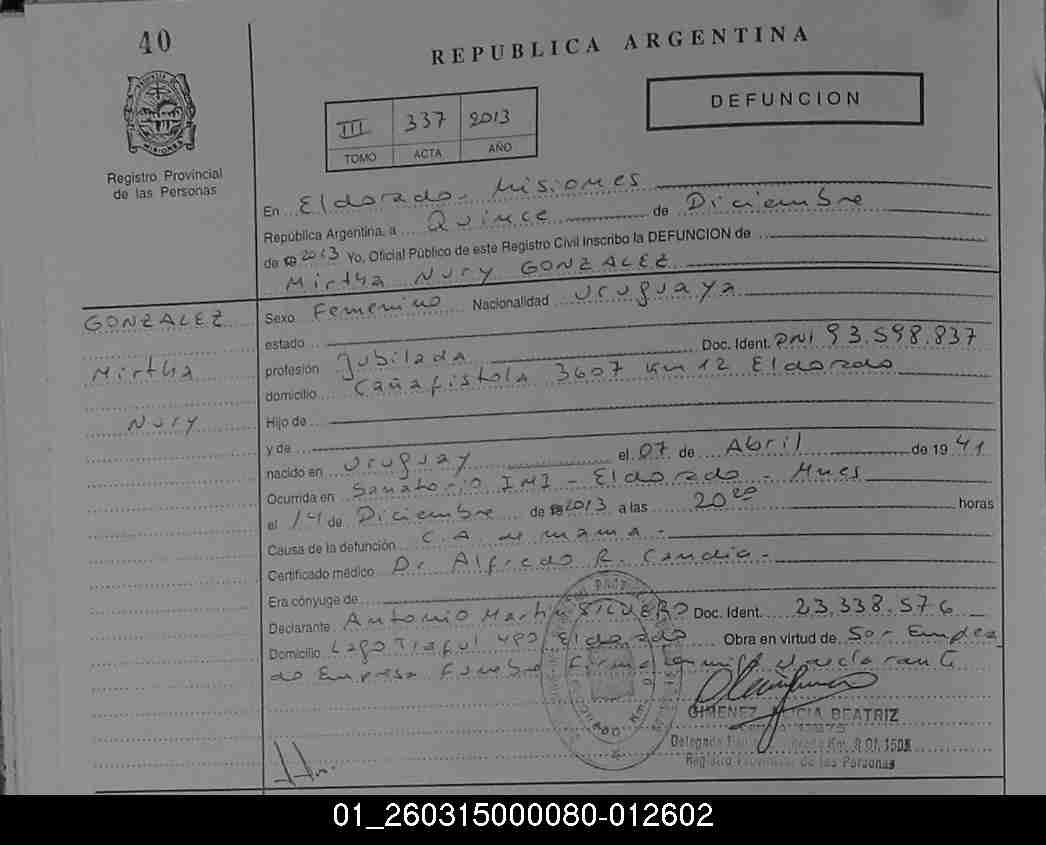 40
REPUBLICA ARGENTINA
DEFUNCION
III 337 2013
TOMO ACTA AÑO
MISIONES
Registro Provincial
de las Personas
En Eldorado - Misiones
República Argentina, a Quince de Diciembre
de 2013 Yo, Oficial Público de este Registro Civil Inscribo la DEFUNCION de
Mirtha Nury GONZALEZ
GONZALEZ
Mirtha
Nury
Sexo Femenino Nacionalidad Uruguaya
estado
profesión Jubilada Doc. Ident. DNI 93.598.837
domicilio Cañafistola 3607 Km 12 Eldorado
Hijo de
y de
nacido en Uruguay el 07 de Abril de 1941
Ocurrida en Sanatorio IMI - Eldorado - Mnes
el 14 de Diciembre de 2013 a las 20 20 horas
Causa de la defunción C.A. de mama -
Certificado médico Dr Alfredo R. Candia -
Era cónyuge de
Declarante Antonio Martin SICUERO Doc. Ident. 23.338.576
Domicilio Lago Traful 480 Eldorado Obra en virtud de Ser Emplea
do Empresa Funebre Firma el declarante
GIMENEZ ALICIA BEATRIZ
Registro Provincial de las Personas
01_260315000080-012602